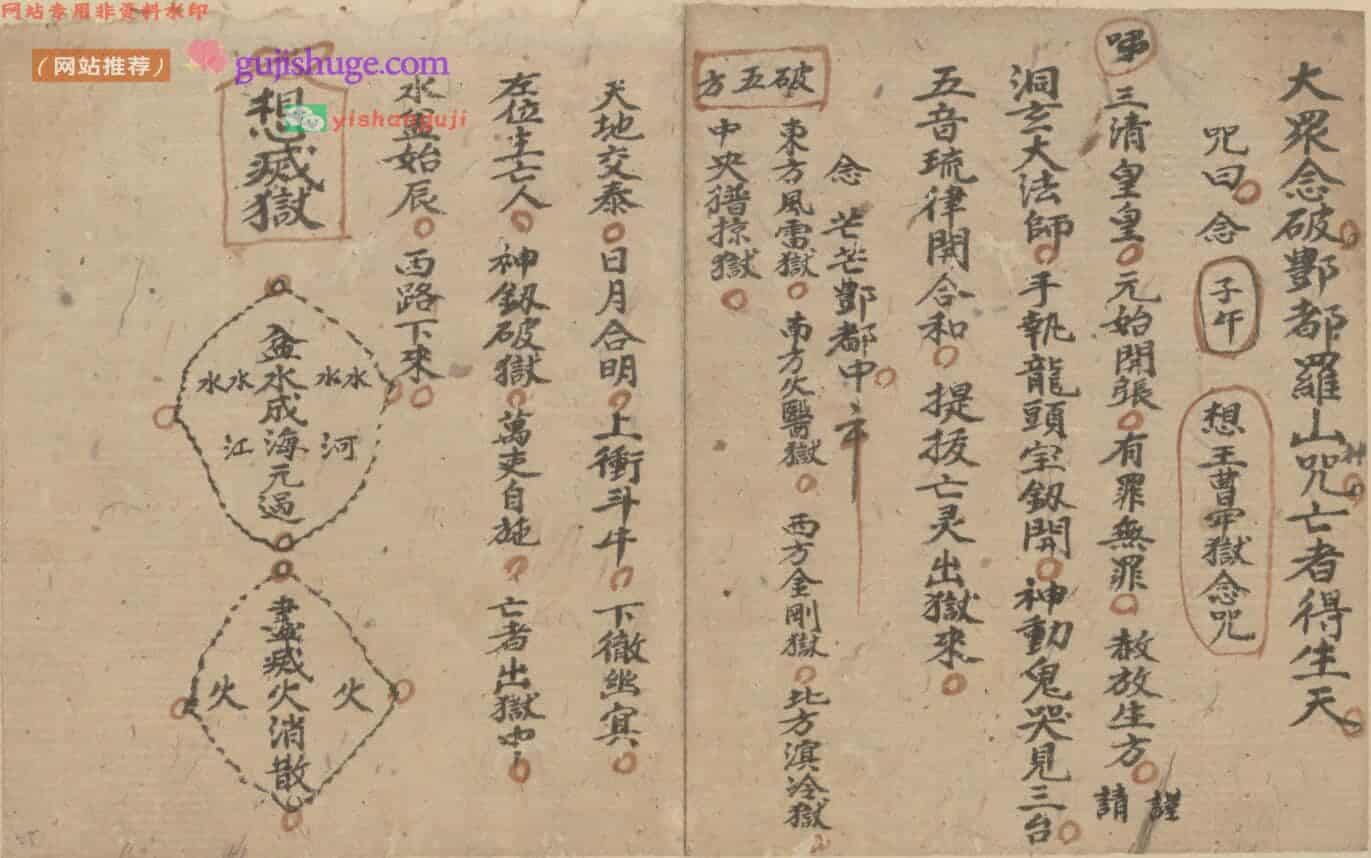 网站专用非资料水印
（网站推荐）
gujishuge.com
yishanguji
大眾念破酆都羅山咒亡者得生天
咒曰 念 子午 想王曹牢獄念咒
三清皇皇 元始開張 有罪無罪 赦放生方 謹請
洞玄大法師 手執龍頭宝釼開 神動鬼哭見三台
五音琉律開合和 提拔亡灵出獄來
念 茫茫酆都中
破五方
東方風雷獄 南方火翳獄 西方金剛獄 北方溟冷獄
中央普掠獄
天地交泰 日月合明 上衝斗牛 下徹幽冥
在位生亡人 神釼破獄 萬吏自旋 亡者出獄
水盆始辰 西路下來
想滅獄
水水 盆水成海元過 水水
江 河
火 盡滅火消散 火